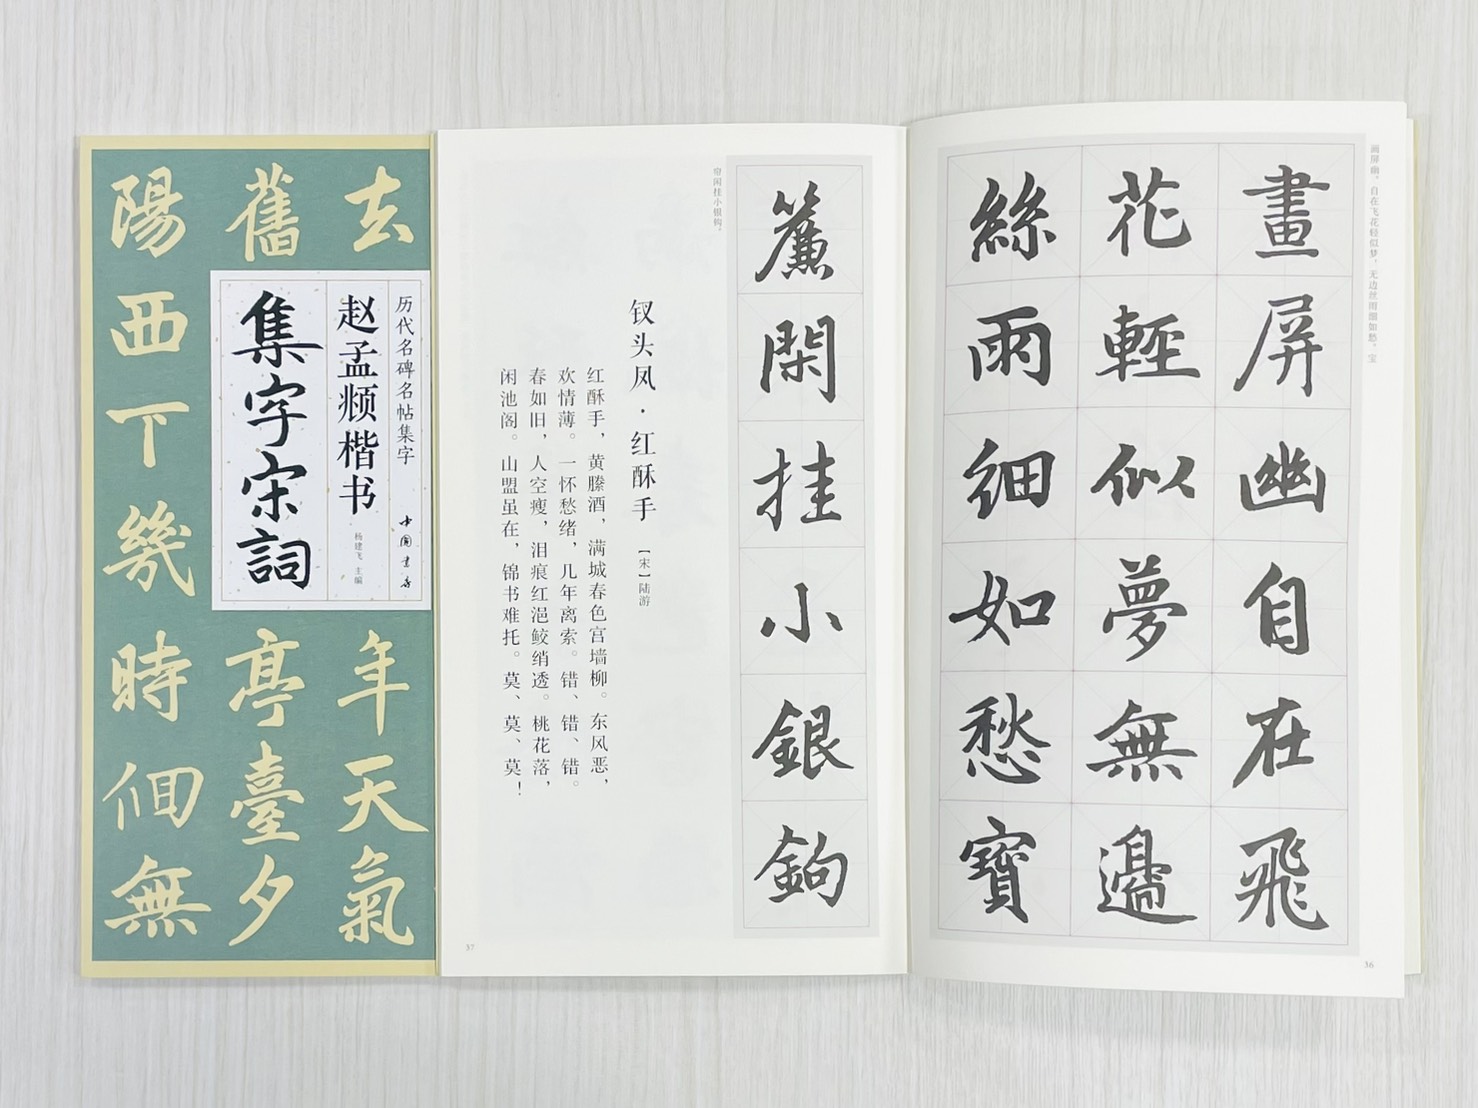 去年天氣
舊亭臺夕
陽西下幾時佪無
历代名碑名帖集字
中國書店
赵孟頫楷书
杨建飞 主编
集字宋詞
画屏幽。自在飞花轻似梦，无边丝雨细如愁。宝
畫屏幽自在飛
花輕似夢無邊
絲雨細如愁寶
36
簾閑挂小銀鉤
帘闲挂小银钩。
钗头凤·红酥手 【宋】陆游
红酥手，黄縢酒，满城春色宫墙柳。东风恶，
欢情薄。一怀愁绪，几年离索。错、错、错。
春如旧，人空瘦，泪痕红浥鲛绡透。桃花落，
闲池阁。山盟虽在，锦书难托。莫、莫、莫！
37